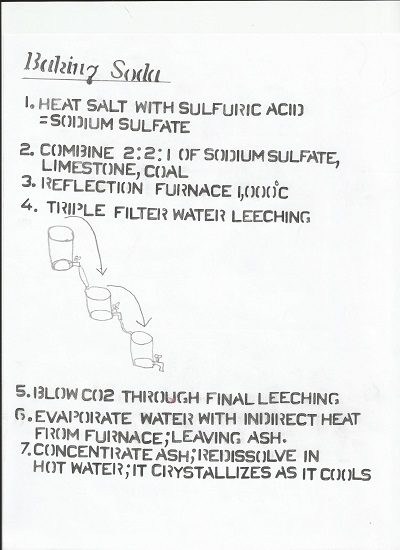 Baking Soda
1. HEAT SALT WITH SULFURIC ACID
= SODIUM SULFATE
2. COMBINE 2:2:1 OF SODIUM SULFATE,
LIMESTONE, COAL
3. REFLECTION FURNACE 1,000°C
4. TRIPLE FILTER WATER LEECHING
5. BLOW CO2 THROUGH FINAL LEECHING
6. EVAPORATE WATER WITH INDIRECT HEAT
FROM FURNACE; LEAVING ASH.
7. CONCENTRATE ASH; REDISSOLVE IN
HOT WATER; IT CRYSTALLIZES AS IT COOLS